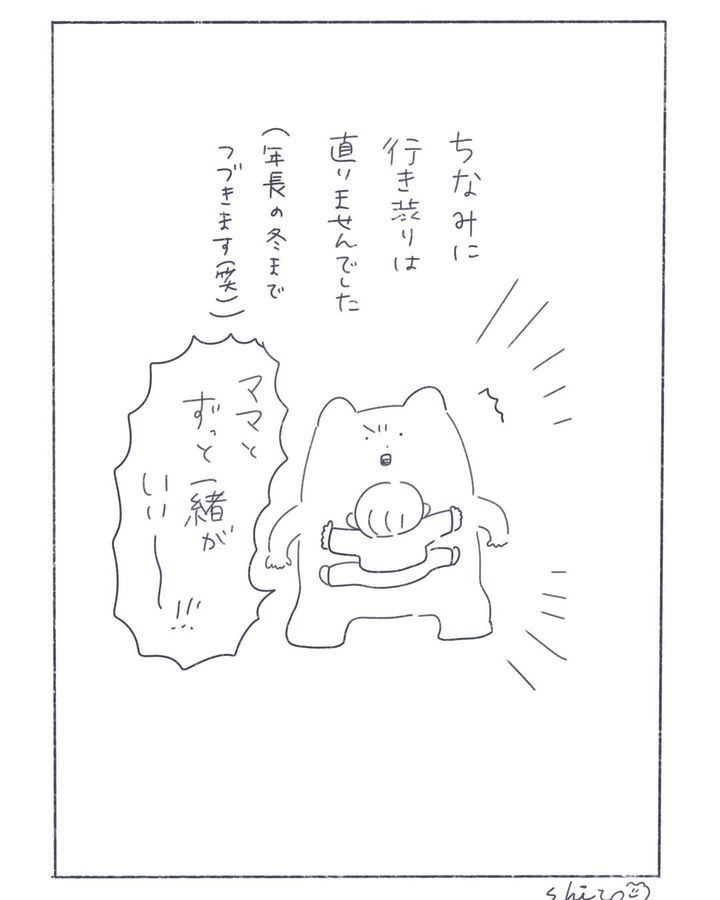 ちなみに
行き渋りは
直りませんでした
(年長の冬まで
つづきます(笑))
ママと
ずっと一緒が
いいー!!!
shiro